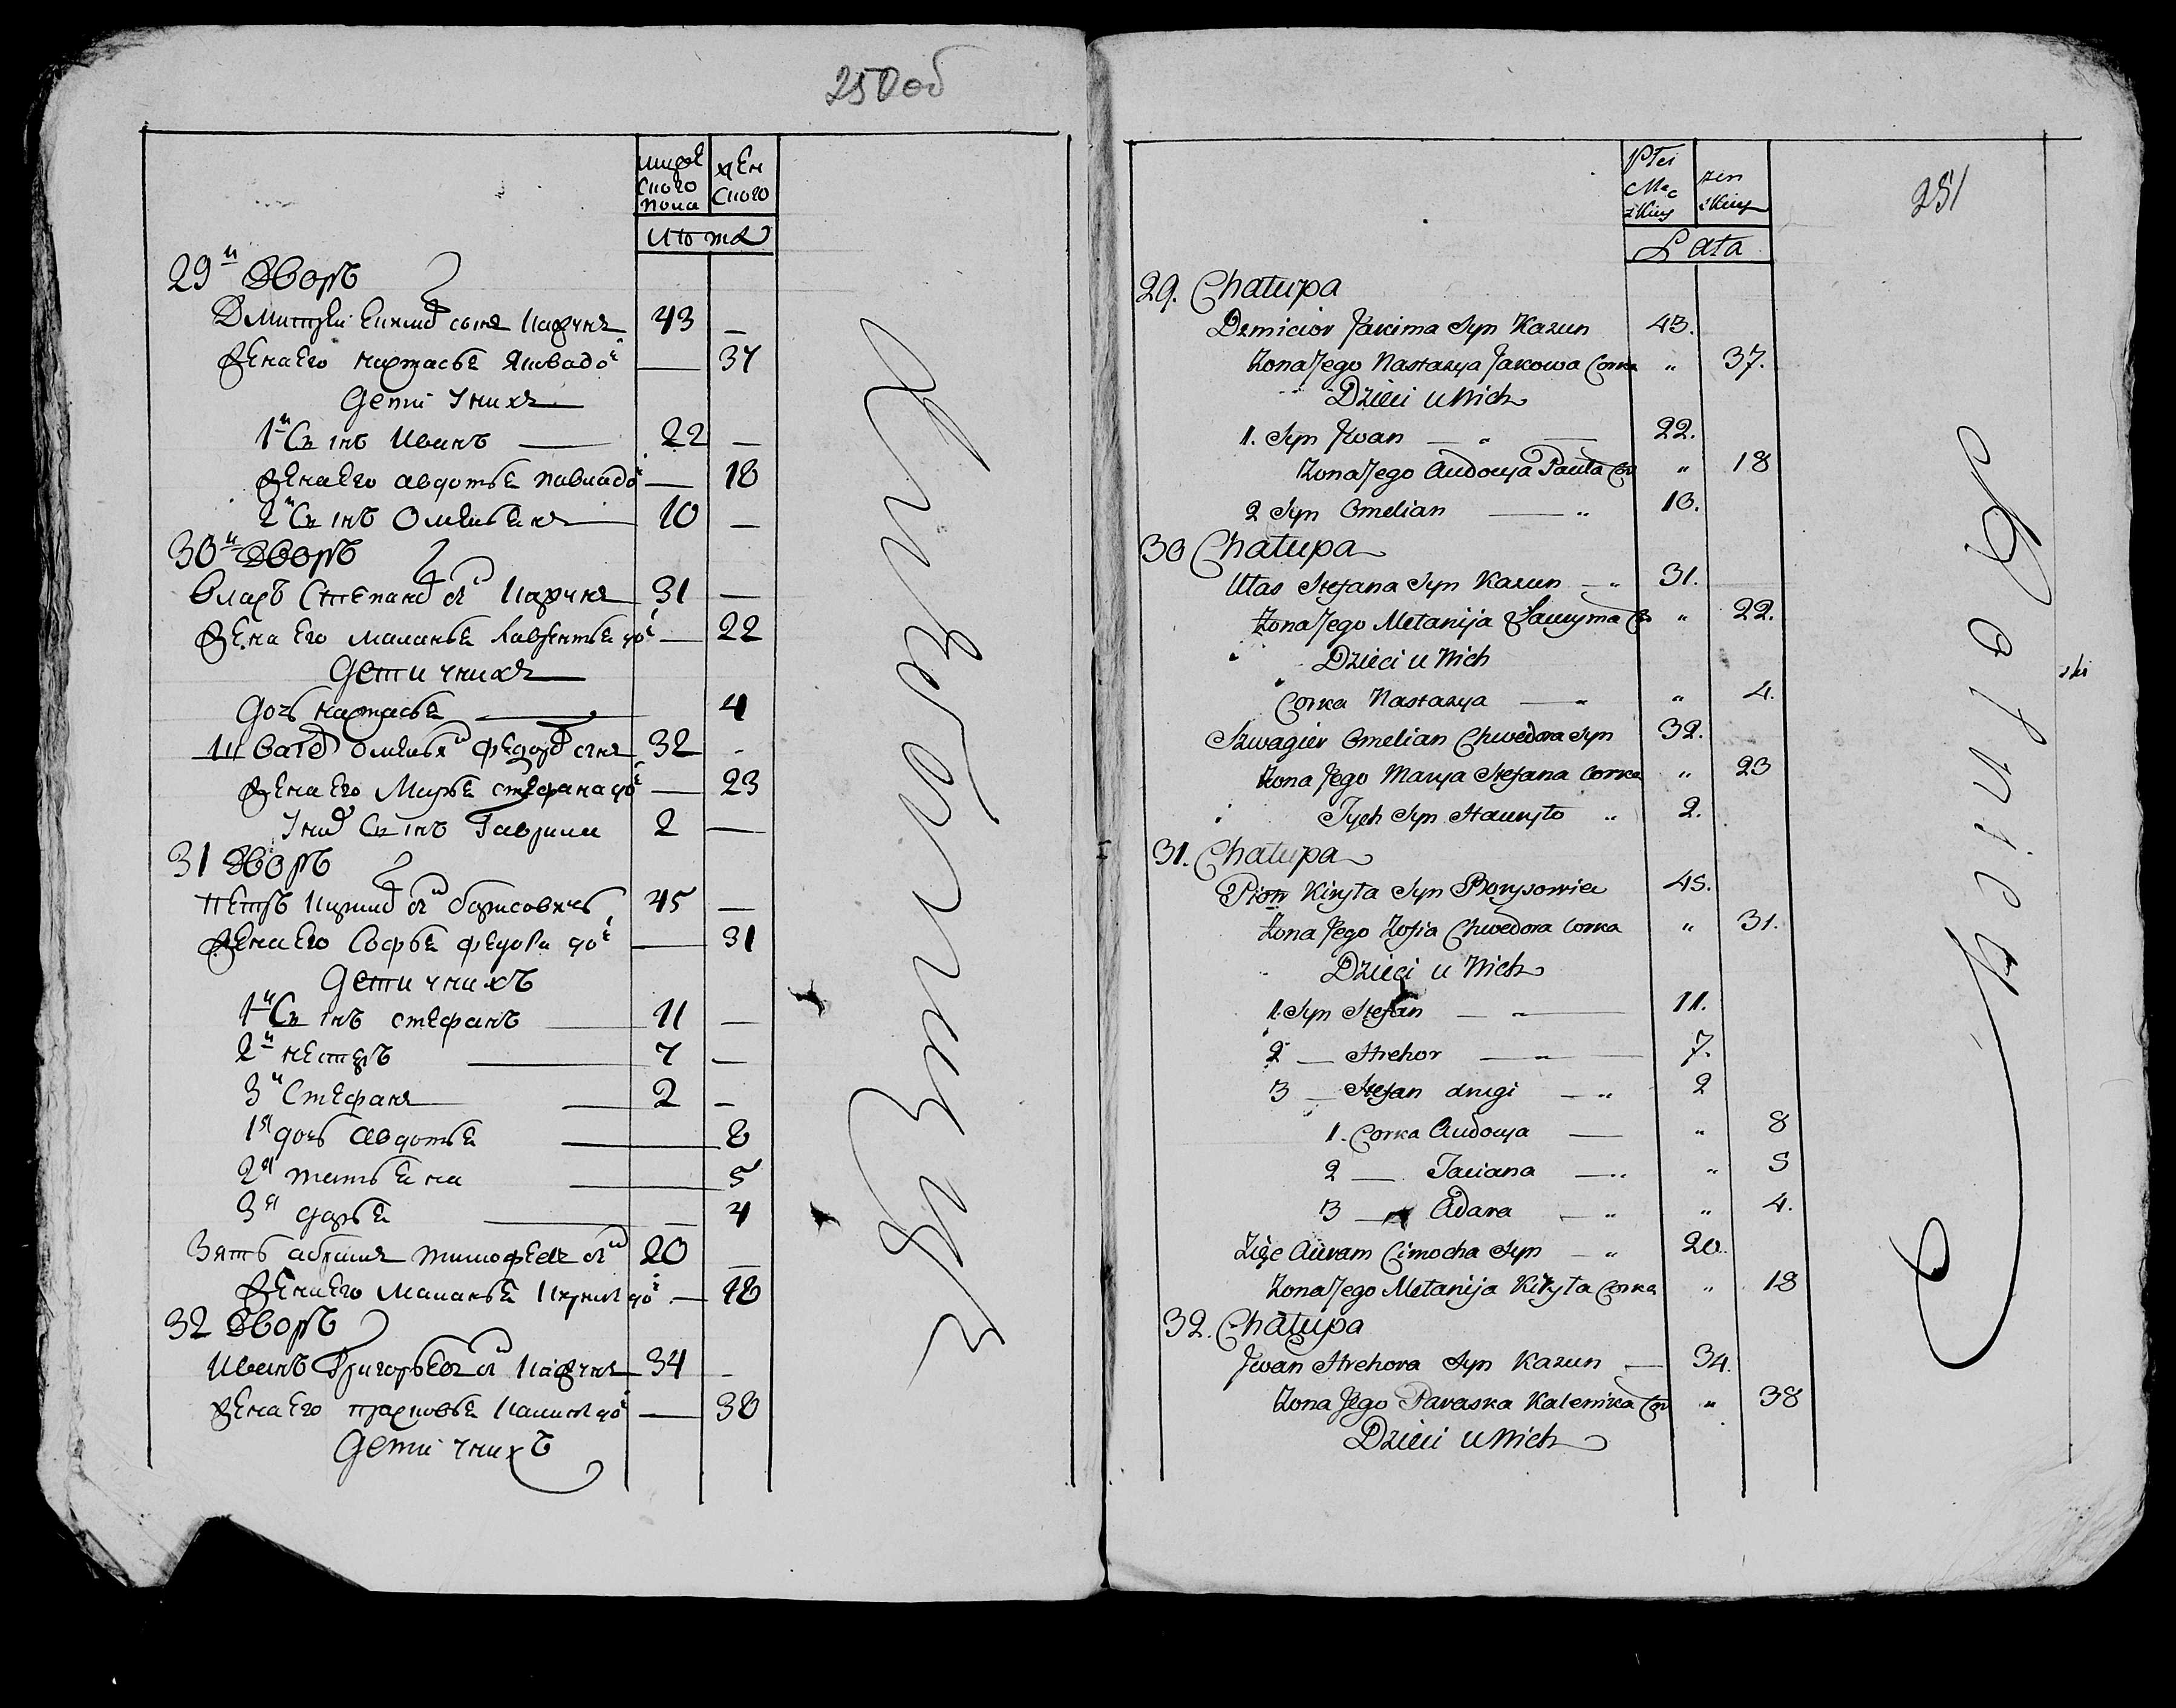 250об
мужескаго пола
женскаго
Лѣта
29й Дворъ
Дмитрей Екимо сынъ Казунъ 43 —
Жена его Настасья Яковадо — 37
Дети у нихъ
1й Сынъ Иванъ — 22 —
Жена его Авдотья Павладо — 18
2й Сынъ Омельянъ — 10 —
30й Дворъ
Власъ Степано Казунъ 31 —
Жена Его Маланья Лаврентья до — 22
Дети у нихъ
Дочь Настасья — 4
Шваге Омельян Федоро снъ 32 -
Жена его Марья Стефана до — 23
У них Сынъ Гаврила 2 —
31 Дворъ
Петръ Кирило Борисовичъ 45 —
Жена Его Софья Федора до — 31
Дети у нихъ
1й Сынъ Стефанъ — 11 —
2й — 7 —
3й Стефанъ — 2 —
1я дочь Авдотья — 8
2я Татьяна — 5
3я Дарья — 4
Зять Абрамъ Тимофеевъ 20 —
Жена Его Маланья Кирил до — 18
32 Дворъ
Иванъ Григорьевъ Казунъ 34 -
Жена Его Прасковья до — 38
Дети у нихъ
251
Płci Męzkiey
żenskiey
Lata
29. Chałupa
Dzmicior Jakima Syn Kazun 43.
Zona Jego Nastazya Jakowa Corka " 37.
Dzieci u Nich
1. Syn Jwan — " — 22.
Zona Jego Audocya Pauła Cor " 18
2 Syn Omelian — " 10.
30 Chałupa
Ułas Stefana Syn Kazun — " 31.
Zona Jego Mełanija Ławryna Co " 22.
Dzieci u Nich
Corka Nastazya — " " 4.
Szwagier Omelian Chwedora Syn 32.
Zona Jego Marya Stefana Corka " 23
Tych Syn Hauryło " 2.
31. Chałupa
Piotr Kiryła Syn Borysowicz 45.
Zona Jego Zofia Chwedora Corka " 31.
Dzieci u Nich
1. Syn Stefan — " — 11.
2 — Hrehor — " — 7.
3 — Stefan drugi — " 2
1. Corka Audocya — " 8
2 — Taciana — " " 5
3 — Adara — " " 4.
Zięc Auram Cimocha Syn — " 20.
Zona Jego Mełanija Kiryła Corka " 18
32. Chałupa
Jwan Hrehora Syn Kazun — 34.
Zona Jego Paraska Kalenika Cor " 38
Dzieci u Nich